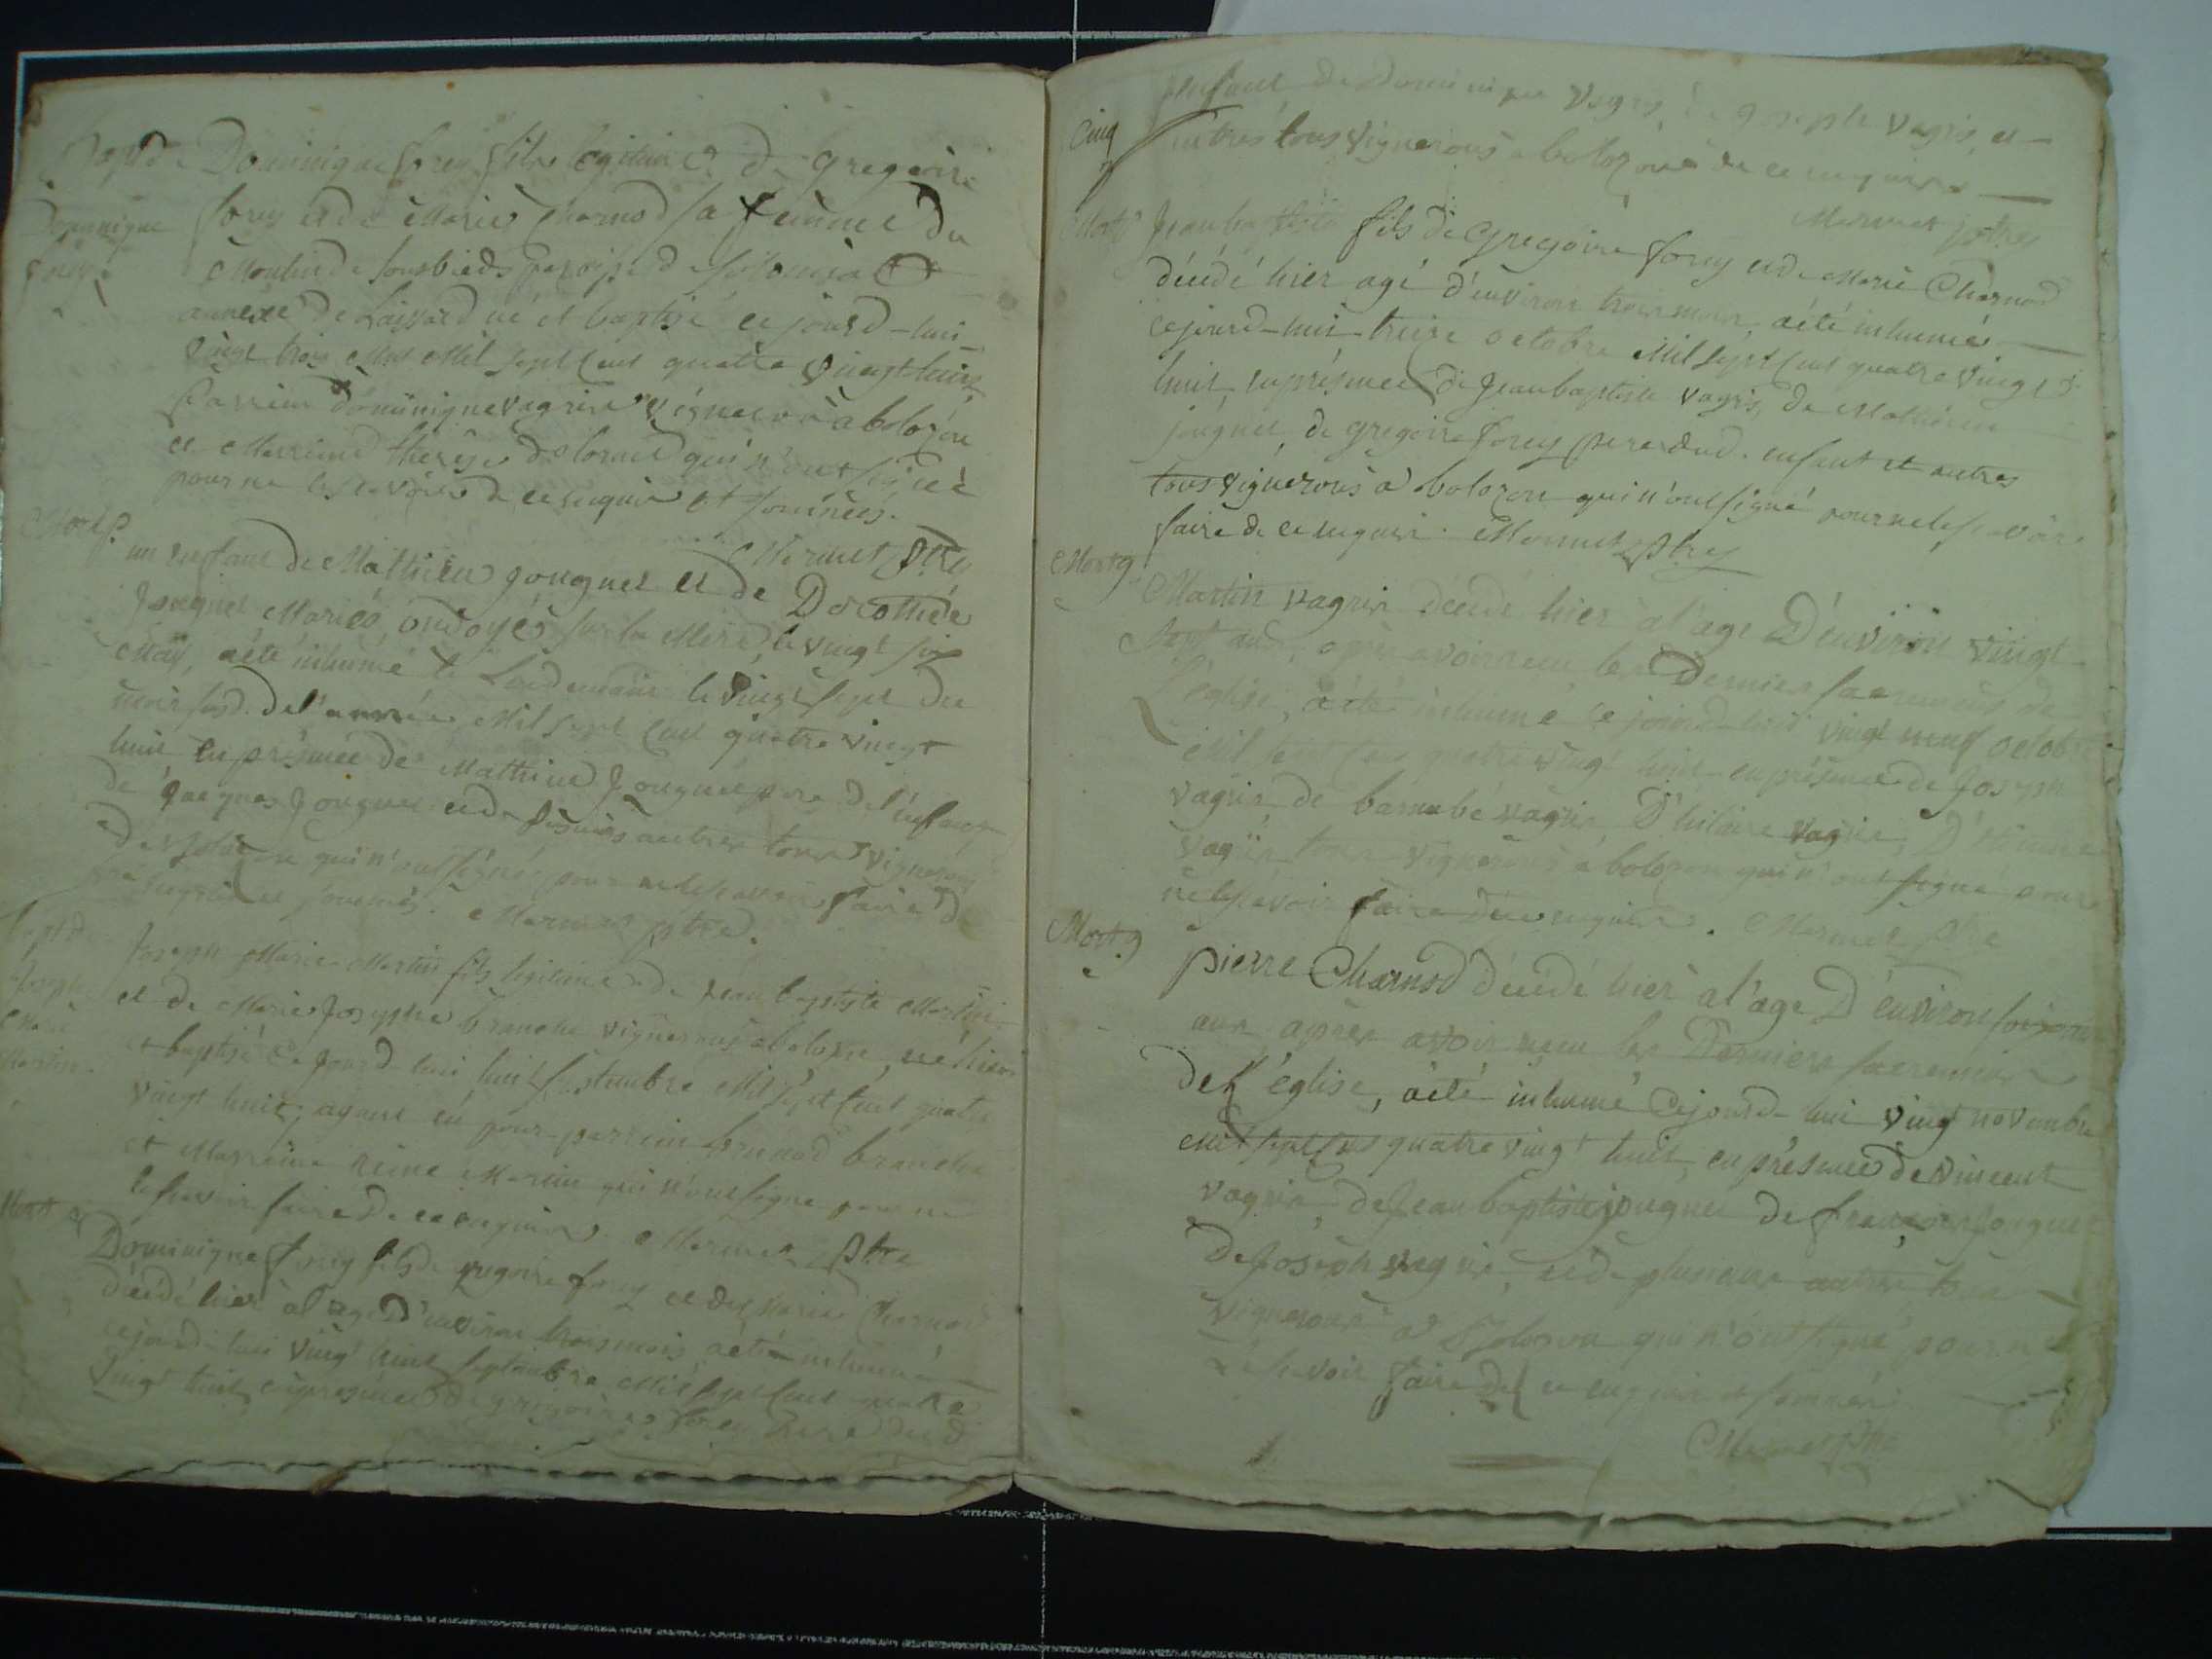 Bapt. de Dominique forey fils legitime de gregoire
Dominique forey et de Marie Charnod sa femme du
forey. Moulin de sousbieds paroisse de
annexe de Laissard né et baptisé ce jourd-hui
vingt trois Mil sept cent quatre vingt huit
Parrein dominique vagrie vigneron a bolozon
et Marreine therese qui n'ont signé
pour ne le scavoir de ce requis et sommés.
Mermet ptre
Mort
un enfant de Mathieu Jouguet et de Dorothée
Jouguet Mariés, ondoyés sur la Mere, le vingt six
May, a été inhumé le Lendemain le vingt sept du
mois susd. de l'année Mil sept cent quatre vingt
huit, en présence de Mathieu Jouguet pere de l'enfant
de Jacques Jouguet et de plusieurs autres tous vignerons
de Bolozon qui n'ont signé pour ne le scavoir faire de
ce requis et sommés. Mermet ptre.
Bapt. de Joseph Marie Martin fils legitime de Jean baptiste Martin
Joseph et de Marie Josephe branche vignerons a bolozon, né hier
Marie et baptisé ce jourd-hui huit septembre Mil sept cent quatre
Martin. vingt huit, ayant eû pour parrein branche
et Marreine reine Martin qui n'ont signé pour ne
le scavoir faire de ce requis. Mermet Ptre
Mort
Dominique forey fils de gregoire forey et de Marie Charnod
décédé hier a l'age d'environ trois mois, a été inhumé
ce jourd-hui vingt huit septembre Mil sept cent quatre
vingt huit, en présence de gregoire forey pere dud.
enfant de Dominique vagrie, de Joseph vagrie, et
Cinq autres tous vignerons a bolozon de ce requis
Mermet ptre
Mort Jean baptiste fils de Gregoire forey et de Marie Charnod
décédé hier agé d'environ trois mois, a été inhumé
ce jourd-hui treize octobre Mil sept cent quatre vingt
huit, en présence de Jean baptiste vagrie, de Mathieu
jouguet, de gregoire forey pere dud. enfant et autres
tous vignerons a bolozon qui n'ont signé pour ne le scavoir
faire de ce requis. Mermet Ptre
Mort
Martin vagrie décédé hier à l'age D'environ vingt
sept ans, après avoir recu les Dernier sacremens de
L'église, a été inhumé ce jourd-hui vingt neuf octobre
Mil sept cent quatre vingt huit en présence de Joseph
vagrie, de barnabé vagrie, D'hilaire vagrie, D'étienne
vagrie tous vignerons a bolozon qui n'ont signé pour
ne le scavoir faire de ce requis. Mermet Ptre
Mort
pierre Charnod décédé hier a l'age D'environ soixante
ans, après avoir recu les Derniers sacremens
de L'église, a été inhumé ce jourd-hui vingt novembre
mil sept cent quatre vingt huit, en présence de vincent
vagrie, de Jean baptiste jouguet, de françois jouguet
de Joseph vagrie, et de plusieurs autres tous
vignerons a Bolozon qui n'ont signé pour ne
le scavoir faire de ce requis et sommés.
Mermet Ptre